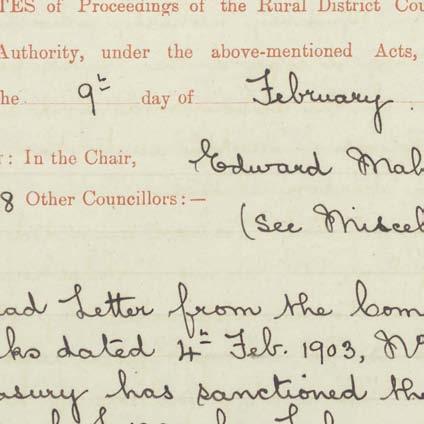 TES of Proceedings of the Rural District Cou
Authority, under the above-mentioned Acts,
he 9th day of February
: In the Chair, Edward Mah
8 Other Councillors:—
(See Miscel
ead Letter from the Com
ks dated 4th Feb. 1903, No
asury has sanctioned the